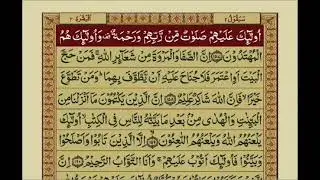 سَيَقُولُ ٢
اَلْبَقَرَة ٢
اُولٰٓئِكَ عَلَيْهِمْ صَلَوٰتٌ مِّنْ رَّبِّهِمْ وَرَحْمَةٌ ۟ وَاُولٰٓئِكَ هُمُ
الْمُهْتَدُوْنَ ۝ اِنَّ الصَّفَا وَالْمَرْوَةَ مِنْ شَعَآئِرِ اللّٰهِ ۚ فَمَنْ حَجَّ
الْبَيْتَ اَوِ اعْتَمَرَ فَلَا جُنَاحَ عَلَيْهِ اَنْ يَّطَّوَّفَ بِهِمَا ؕ وَمَنْ تَطَوَّعَ
خَيْرًا ۙ فَاِنَّ اللّٰهَ شَاكِرٌ عَلِيْمٌ ۝ اِنَّ الَّذِيْنَ يَكْتُمُوْنَ مَآ اَنْزَلْنَا مِنَ
الْبَيِّنٰتِ وَالْهُدٰى مِنْۢ بَعْدِ مَا بَيَّنّٰهُ لِلنَّاسِ فِى الْكِتٰبِ ۙ اُولٰٓئِكَ
يَلْعَنُهُمُ اللّٰهُ وَيَلْعَنُهُمُ اللّٰعِنُوْنَ ۝ اِلَّا الَّذِيْنَ تَابُوْا وَاَصْلَحُوْا
وَبَيَّنُوْا فَاُولٰٓئِكَ اَتُوْبُ عَلَيْهِمْ ۚ وَاَنَا التَّوَّابُ الرَّحِيْمُ ۝ اِنَّ